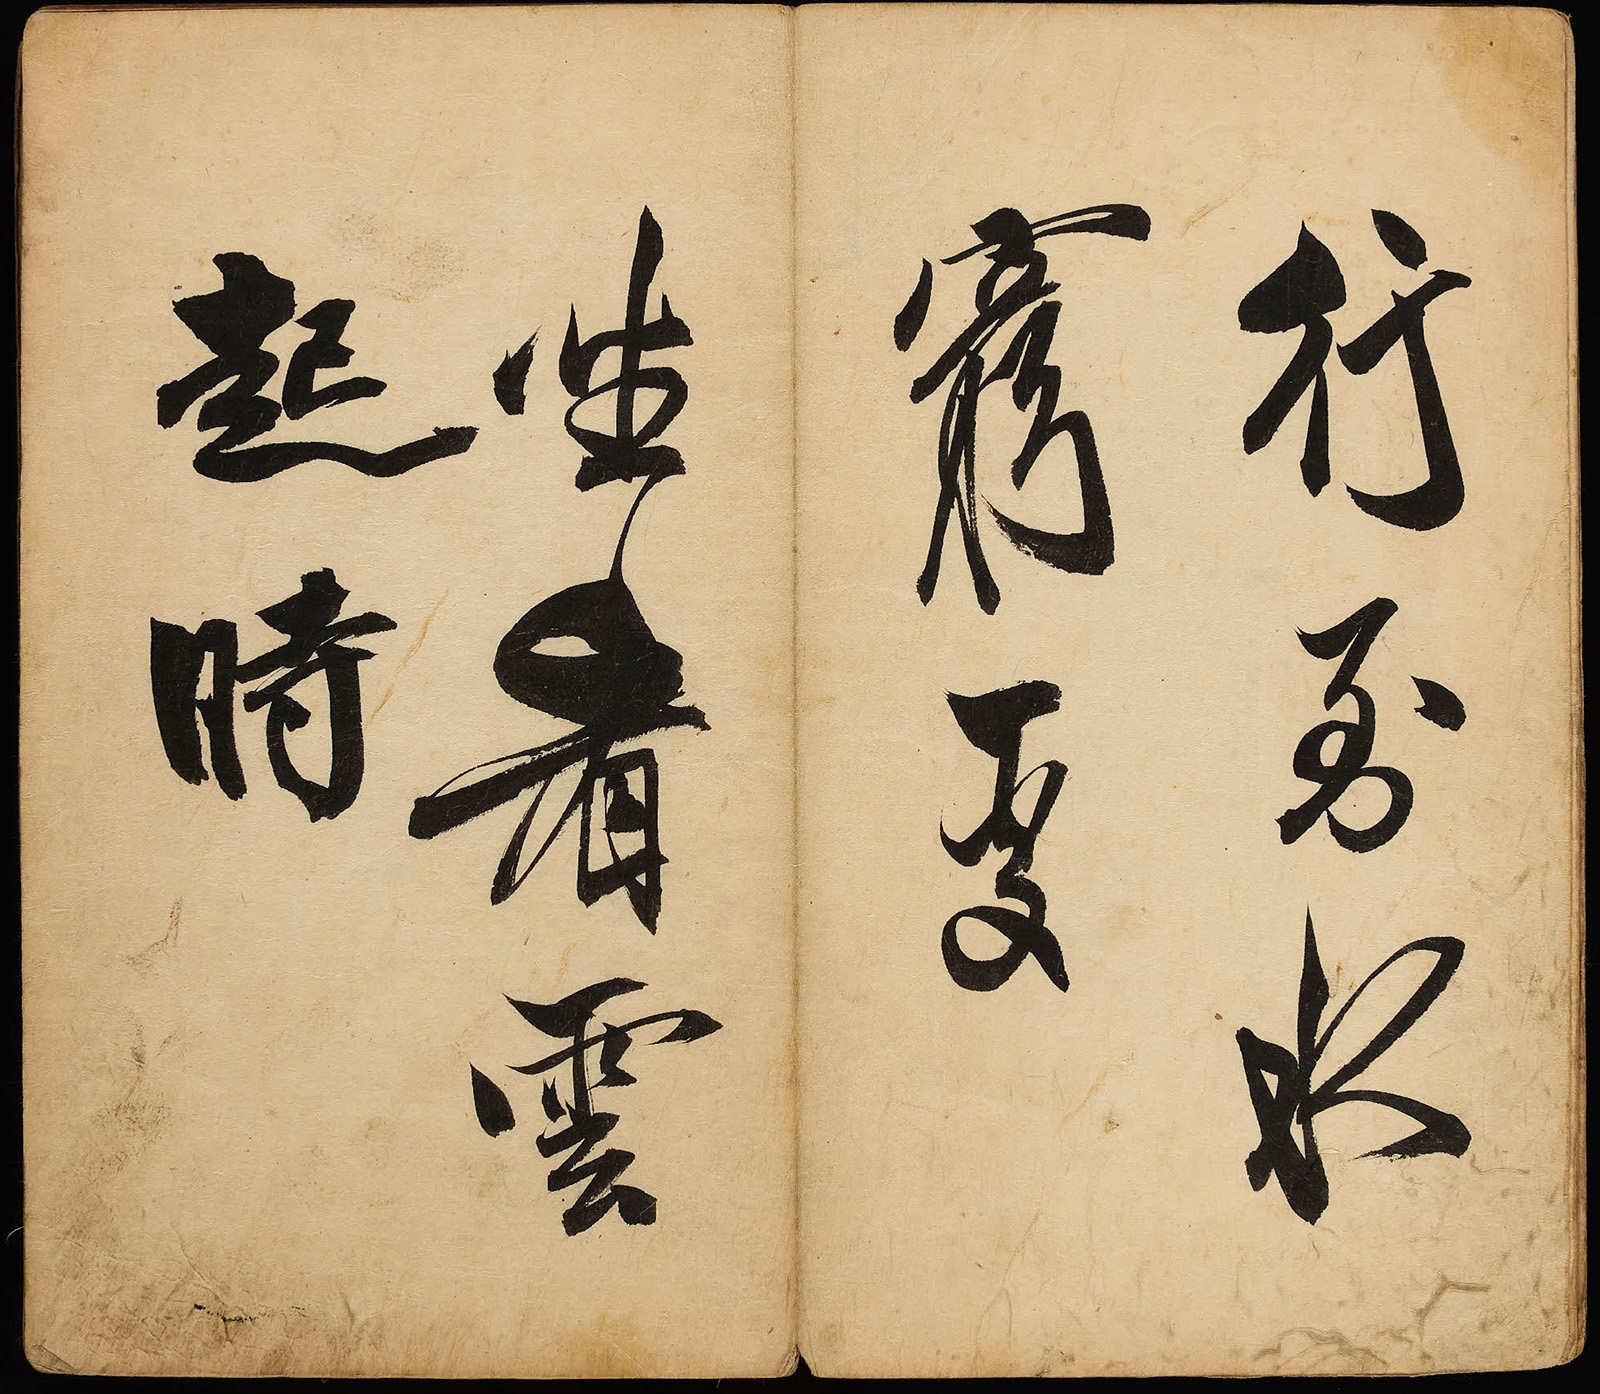 行到水
窮處
坐看雲
起時